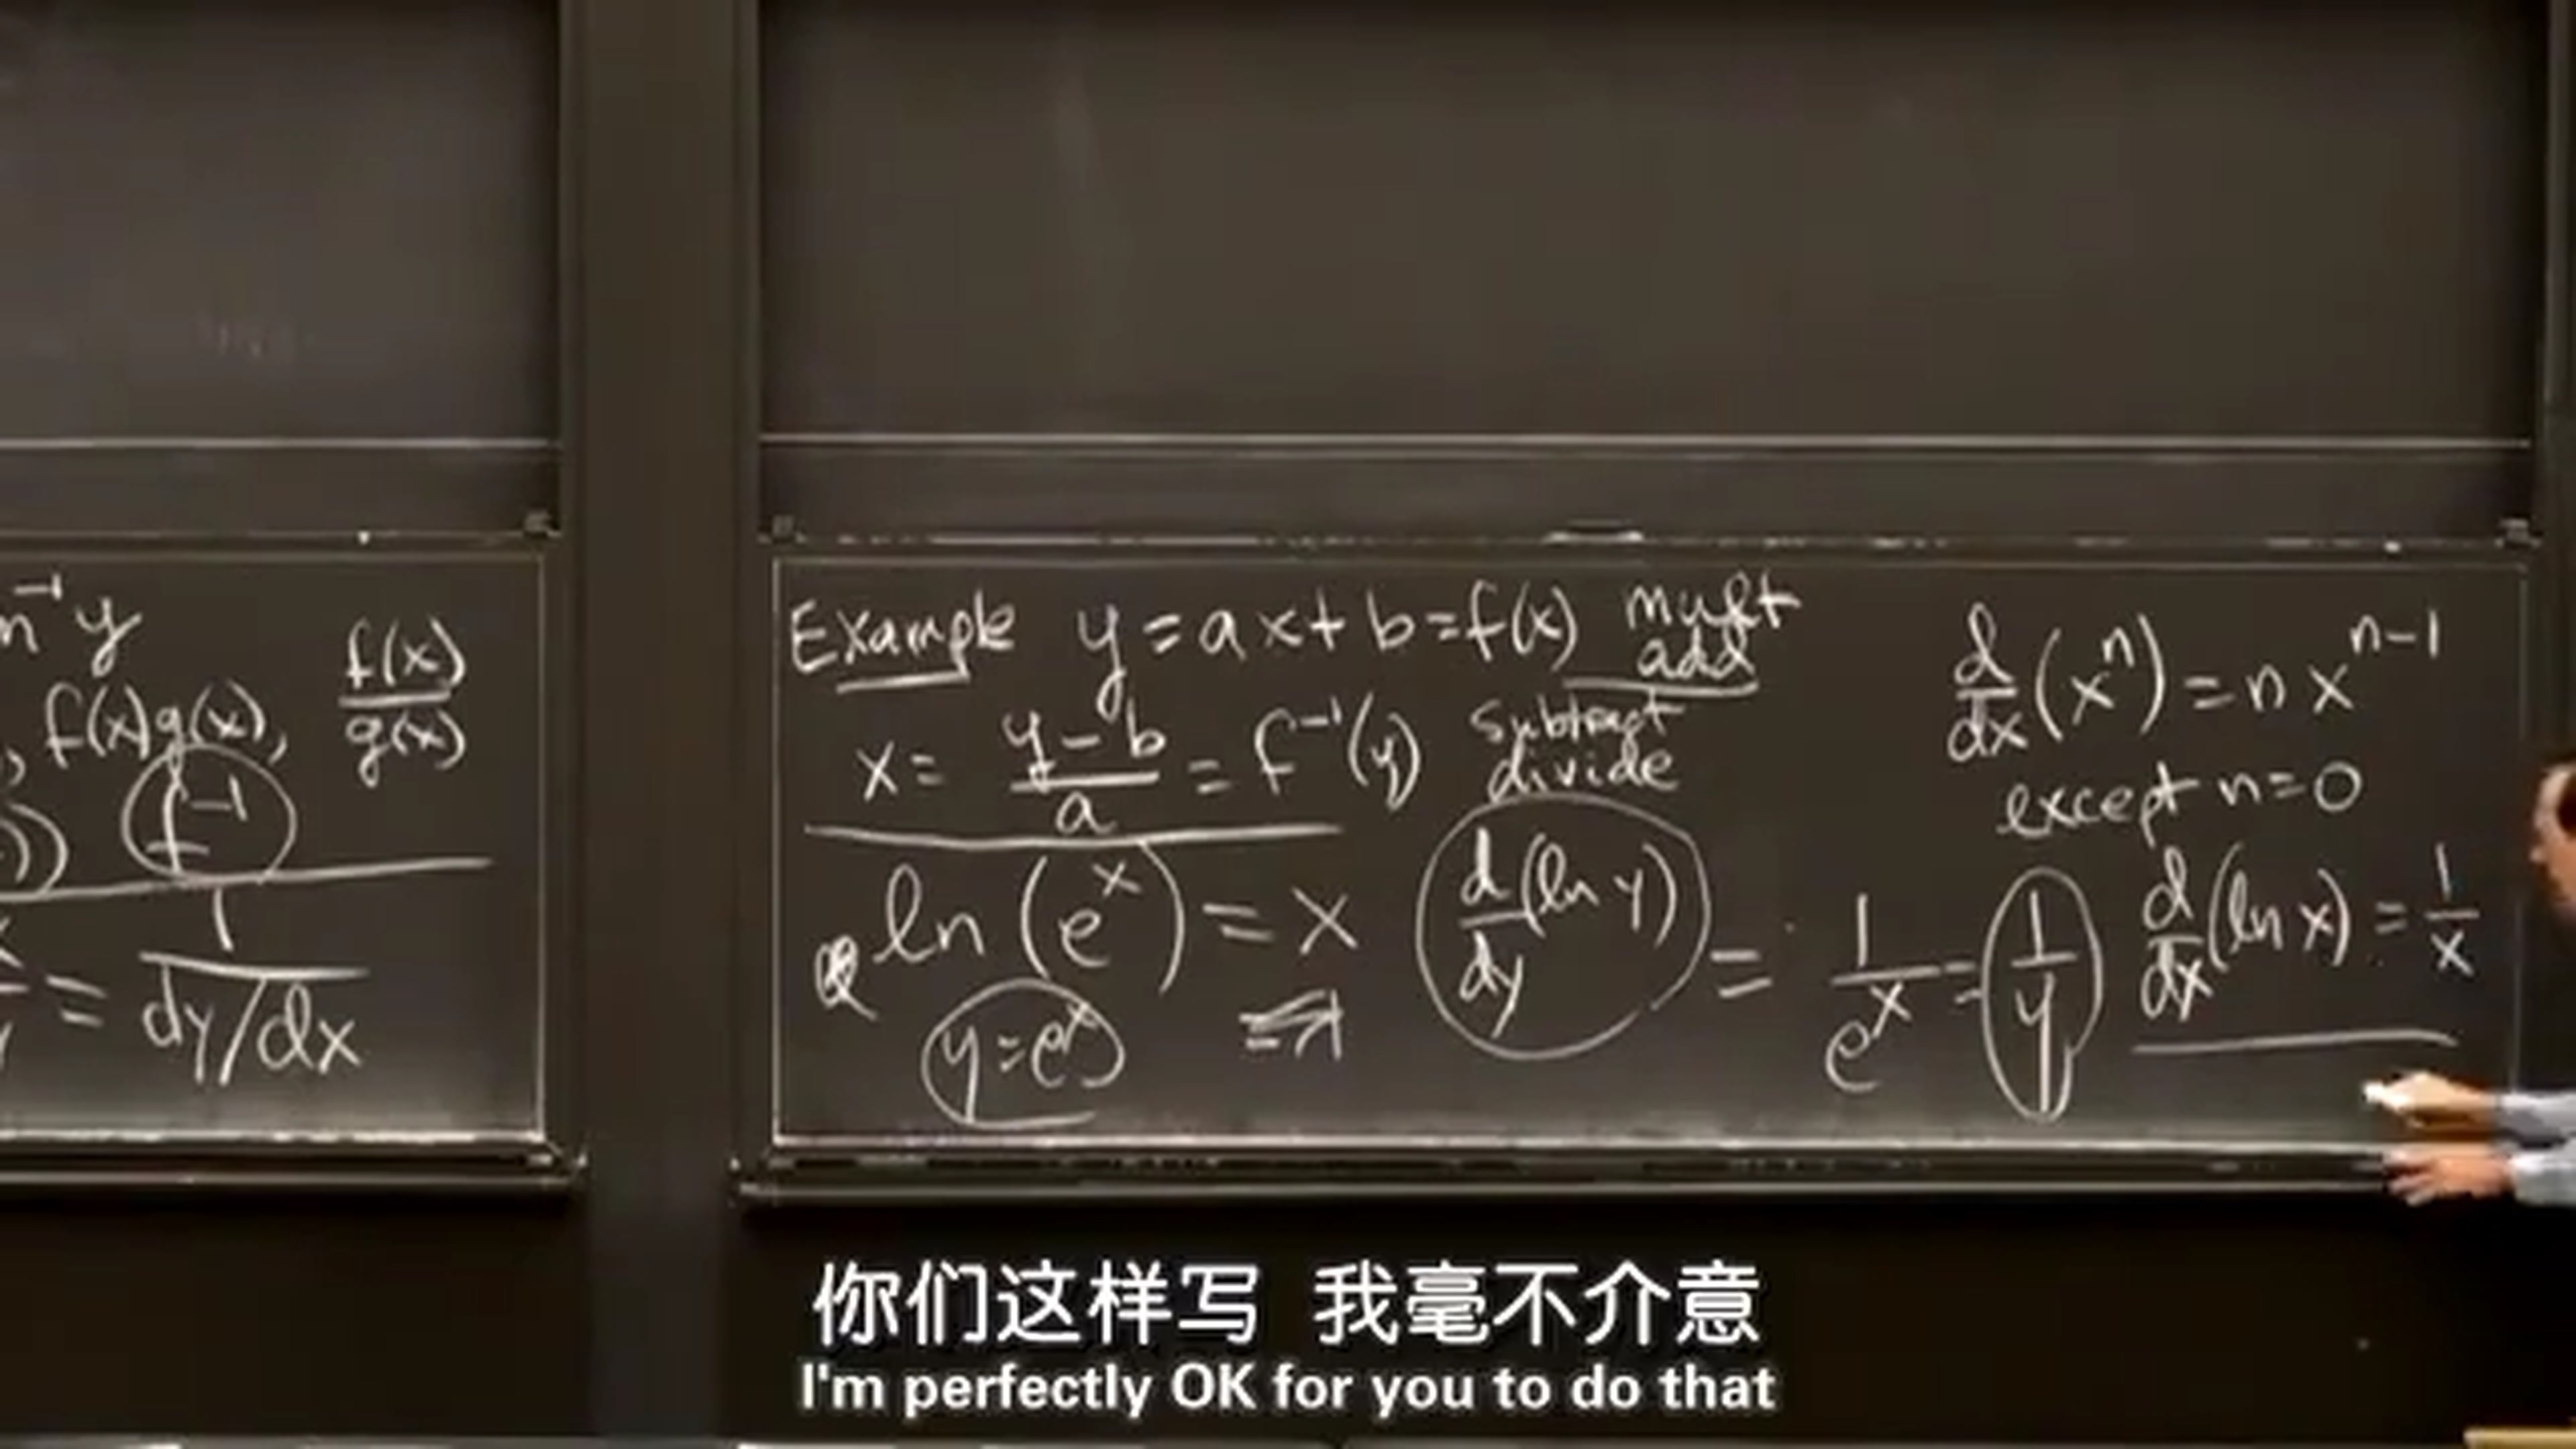 ⁻¹ y
f(x)/g(x)
, f(x)g(x),
f⁻¹
= 1/(dy/dx)
Example y = ax + b = f(x) mult
add
x = (y - b)/a = f⁻¹(y) subtract
divide
ln(eˣ) = x
y = eˣ
d/dy (ln y) = 1/eˣ = 1/y
d/dx (xⁿ) = n xⁿ⁻¹
except n = 0
d/dx (ln x) = 1/x
你们这样写 我毫不介意
I'm perfectly OK for you to do that